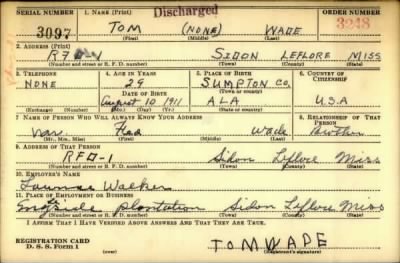 Discharged
SERIAL NUMBER 1. NAME (Print) ORDER NUMBER
3097 TOM (NONE) WADE 3248
(First) (Middle) (Last)
2. ADDRESS (Print)
SIDON LEFLORE MISS
(Number and street or R. F. D. number) (Town) (County) (State)
3. TELEPHONE 4. AGE IN YEARS 5. PLACE OF BIRTH 6. COUNTRY OF CITIZENSHIP
NONE 29 SUMPTON CO.
(Town or county)
DATE OF BIRTH
August 10 1911 ALA U.S.A
(Exchange) (Number) (Mo.) (Day) (Yr.) (State or country)
7. NAME OF PERSON WHO WILL ALWAYS KNOW YOUR ADDRESS 8. RELATIONSHIP OF THAT PERSON
Wade
(Mr., Mrs., Miss) (First) (Middle) (Last)
9. ADDRESS OF THAT PERSON
RFD-1 Sidon Leflore Miss
(Number and street or R. F. D. number) (Town) (County) (State)
10. EMPLOYER'S NAME
Walker
11. PLACE OF EMPLOYMENT OR BUSINESS
plantation Sidon Leflore Miss
(Number and street or R. F. D. number) (Town) (County) (State)
I AFFIRM THAT I HAVE VERIFIED ABOVE ANSWERS AND THAT THEY ARE TRUE.
REGISTRATION CARD
D. S. S. Form 1
TOM WADE
(Registrant's signature)